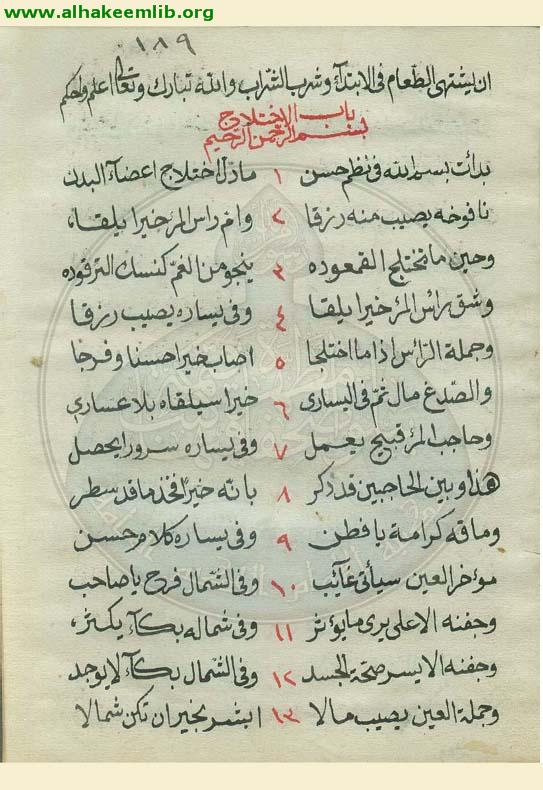 www.alhakeemlib.org
١٨٩
ان يشتهى الطعام فى الابتدآء وشرب الشراب والله تبارك وتعالى اعلم واحكم
باب الاختلاج
بسم الله الرحمن الرحيم
بدأت بسم الله فى نظم حسن ١ ماذل اختلاج اعضآء البدن
نافوخه يصيب منه رزقا ٢ وام راس المرء خيرا يلقا
وحين ما تختلج القمعوده ٣ ينجو من الغم كنسك الترقوده
وشق رائس المرء خيرا يلقا ٤ وفى يساره يصيب رزقا
وجملة الرأس اذا ما اختلجا ٥ اصاب خيرا حسنا وفرجا
والصدغ مال ثم فى اليسارى ٦ خيرا سيلقاه بلا عسارى
وحاجب المرء قبيح يعمل ٧ وفى يساره سرورا يحصل
هذا وبين الحاجبين قد ذكر ٨ بانه خيرا فخذ ما قد سطر
وماقه كرامة يا فطن ٩ وفى يساره كلام حسن
مؤخر العين سيأتى غآئب ١٠ وفى الشمال فرح يا صاحب
وجفنه الاعلى يرى ما يؤثر ١١ وفى شماله بكآء يكثر
وجفنه الايسر صحة الجسد ١٢ وفى الشمال بكآء لا يوجد
وجملة العين يصيب مالا ١٣ ابشر بخير ان تكن شمالا